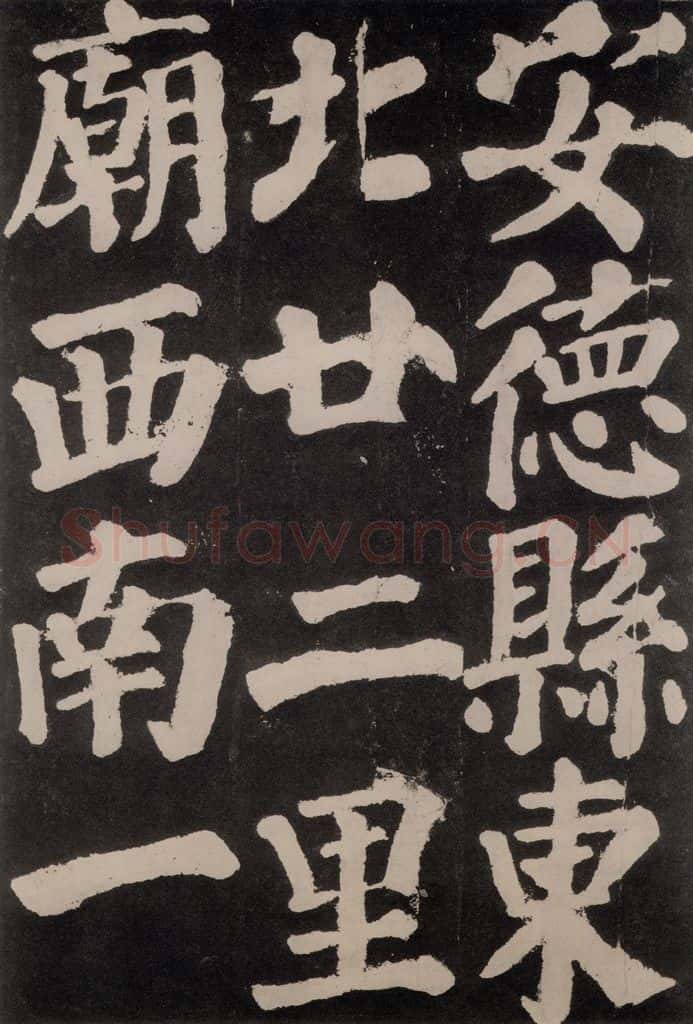 安德縣東
北廿二里
廟西南一
Shufawang.CN